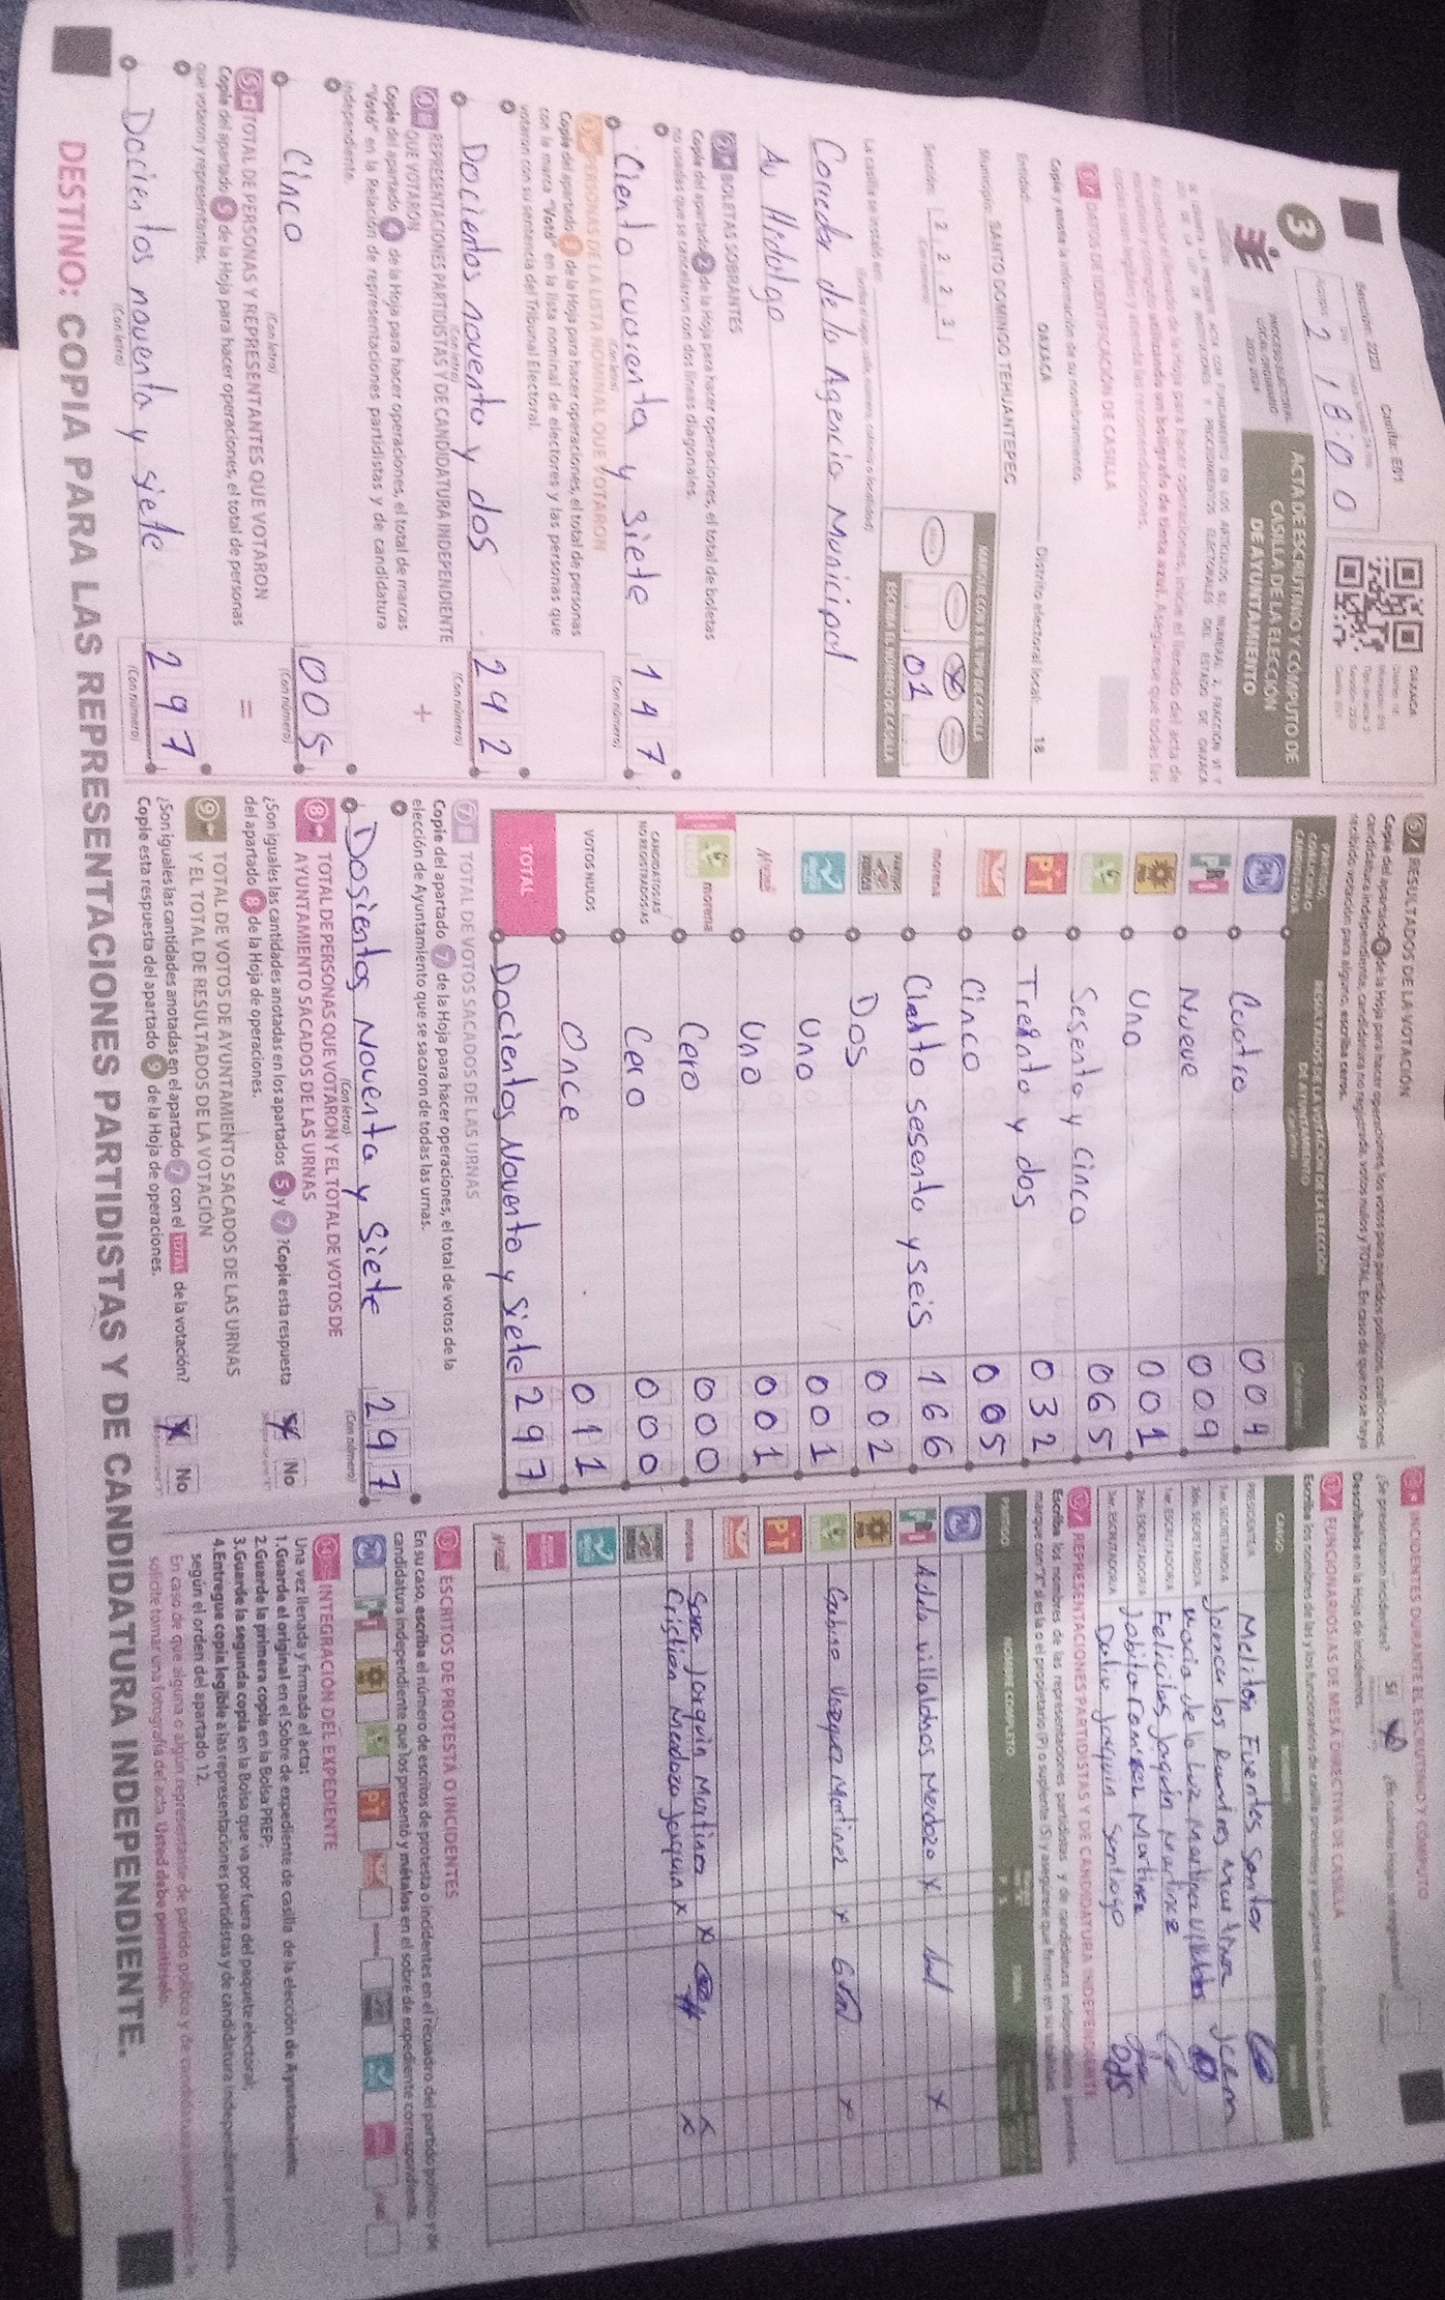 Sección: 2223 Casilla: E01
OAXACA
3
2 18:00
PROCESO ELECTORAL
LOCAL ORDINARIO
2023-2024
ACTA DE ESCRUTINIO Y CÓMPUTO DE
CASILLA DE LA ELECCIÓN
DE AYUNTAMIENTO
1 DATOS DE IDENTIFICACIÓN DE CASILLA
Copie y anote la información de su nombramiento.
Entidad: OAXACA Distrito electoral local: 18
Municipio: SANTO DOMINGO TEHUANTEPEC
Sección: 2 2 2 3
MARQUE CON X EL TIPO DE CASILLA
ESCRIBA EL NÚMERO DE CASILLA
01
La casilla se instaló en:
Corredor de la Agencia Municipal
Av Hidalgo
2 BOLETAS SOBRANTES
Copie del apartado 2 de la Hoja para hacer operaciones, el total de boletas
no usadas que se cancelaron con dos líneas diagonales.
Ciento cuarenta y siete 147
(Con letra) (Con número)
3 PERSONAS DE LA LISTA NOMINAL QUE VOTARON
Copie del apartado 3 de la Hoja para hacer operaciones, el total de personas
con la marca "Votó" en la lista nominal de electores y las personas que
votaron con su sentencia del Tribunal Electoral.
Docientos noventa y dos 292
(Con letra) (Con número)
4 REPRESENTACIONES PARTIDISTAS Y DE CANDIDATURA INDEPENDIENTE
QUE VOTARON
+
Copie del apartado 4 de la Hoja para hacer operaciones, el total de marcas
"Votó" en la Relación de representaciones partidistas y de candidatura
independiente.
Cinco 005
(Con letra) (Con número)
5 TOTAL DE PERSONAS Y REPRESENTANTES QUE VOTARON
=
Copie del apartado 5 de la Hoja para hacer operaciones, el total de personas
que votaron y representantes.
Docientos noventa y siete 297
(Con letra) (Con número)
6 RESULTADOS DE LA VOTACIÓN
Copie del apartado 6 de la Hoja para hacer operaciones, los votos para partidos políticos, coaliciones,
candidatura independiente, candidatura no registrada, votos nulos y TOTAL. En caso de que no se haya
recibido votación para alguno, escriba ceros.
RESULTADOS DE LA VOTACIÓN DE LA ELECCIÓN
DE AYUNTAMIENTO
PAN Cuatro 004
PRI Nueve 009
Uno 001
Sesenta y cinco 065
PT Treinta y dos 032
Cinco 005
morena Ciento sesenta y seis 166
Dos 002
Uno 001
Uno 001
morena Cero 000
CANDIDATOS/AS
NO REGISTRADOS/AS Cero 000
VOTOS NULOS Once 011
TOTAL Docientos Noventa y siete 297
7 TOTAL DE VOTOS SACADOS DE LAS URNAS
Copie del apartado 7 de la Hoja para hacer operaciones, el total de votos de la
elección de Ayuntamiento que se sacaron de todas las urnas.
Dosientos Noventa y Siete 297
(Con letra) (Con número)
8 TOTAL DE PERSONAS QUE VOTARON Y EL TOTAL DE VOTOS DE
AYUNTAMIENTO SACADOS DE LAS URNAS
¿Son iguales las cantidades anotadas en los apartados 5 y 7 ? Copie esta respuesta
del apartado 8 de la Hoja de operaciones.
No
9 TOTAL DE VOTOS DE AYUNTAMIENTO SACADOS DE LAS URNAS
Y EL TOTAL DE RESULTADOS DE LA VOTACIÓN
¿Son iguales las cantidades anotadas en el apartado 7 con el TOTAL de la votación?
Copie esta respuesta del apartado 9 de la Hoja de operaciones.
No
INCIDENTES DURANTE EL ESCRUTINIO Y CÓMPUTO
¿Se presentaron incidentes? Sí
Descríbalos en la Hoja de incidentes.
FUNCIONARIOS/AS DE MESA DIRECTIVA DE CASILLA
CARGO
PRESIDENTE/A Meliton Fuentes Santos
1er. SECRETARIO/A
2do. SECRETARIO/A Maria de la Luz Martinez
1er. ESCRUTADOR/A Felicitas Joaquin Martinez
2do. ESCRUTADOR/A Ramirez Martinez
3er. ESCRUTADOR/A Dalia Joaquin Santiago
REPRESENTACIONES PARTIDISTAS Y DE CANDIDATURA INDEPENDIENTE
PARTIDO NOMBRE COMPLETO
PAN
PRI Adela villalobos Mendoza x x
Gabino Vazquez Martinez x x
PT
morena Sara Jorquin Martinez x x
Cristian Mendoza Joaquin x x
ESCRITOS DE PROTESTA O INCIDENTES
En su caso, escriba el número de escritos de protesta o incidentes en el recuadro del partido político y de
candidatura independiente que los presentó y métalos en el sobre de expediente correspondiente.
INTEGRACIÓN DEL EXPEDIENTE
Una vez llenada y firmada el acta:
1. Guarde el original en el Sobre de expediente de casilla de la elección de Ayuntamiento;
2. Guarde la primera copia en la Bolsa PREP;
3. Guarde la segunda copia en la Bolsa que va por fuera del paquete electoral;
4. Entregue copia legible a las representaciones partidistas y de candidatura independiente presentes,
según el orden del apartado 12.
En caso de que alguna o algún representante de partido político y de candidatura independiente lo
solicite tomar una fotografía del acta. Usted debe permitírselo.
DESTINO: COPIA PARA LAS REPRESENTACIONES PARTIDISTAS Y DE CANDIDATURA INDEPENDIENTE.